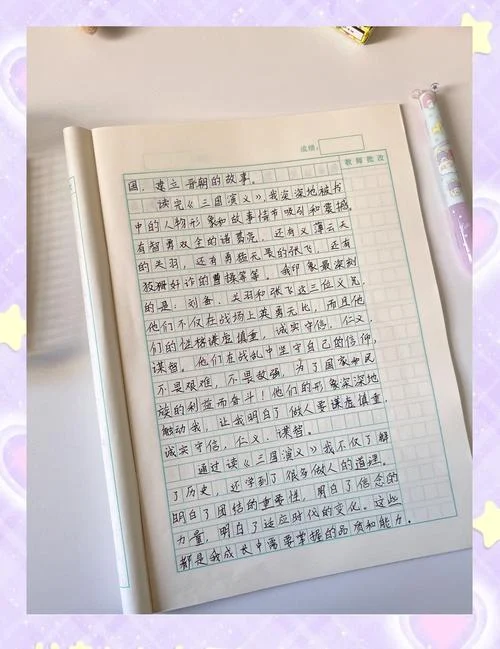 成绩:
教师批改
国、建立晋朝的故事。
读完《三国演义》我深深地被书
中的人物形象和故事情节吸引和震撼。
有智勇双全的诸葛亮，还有义薄云天
的关羽，还有勇猛无畏的张飞，还有
狡猾奸诈的曹操等等。我印象最深刻
的是：刘备、关羽和张飞这三位义兄。
他们不仅在战场上英勇无比，而且他
们的性格谦虚慎重，诚实守信，仁义，
谋智。他们在战乱中坚守自己的信仰，
不畏艰难，不畏敌强，为了国家和民
族的利益而奋斗！他们的形象深深地
触动我，让我明白了做人要谦虚慎重，
诚实守信，仁义，谋智。
通过读《三国演义》我不仅了解
了历史，还学到了很多做人的道理。
明白了团结的重要性，明白了信念的
力量，明白了适应时代的变化。这些
都是我成长中需要掌握的品质和能力。